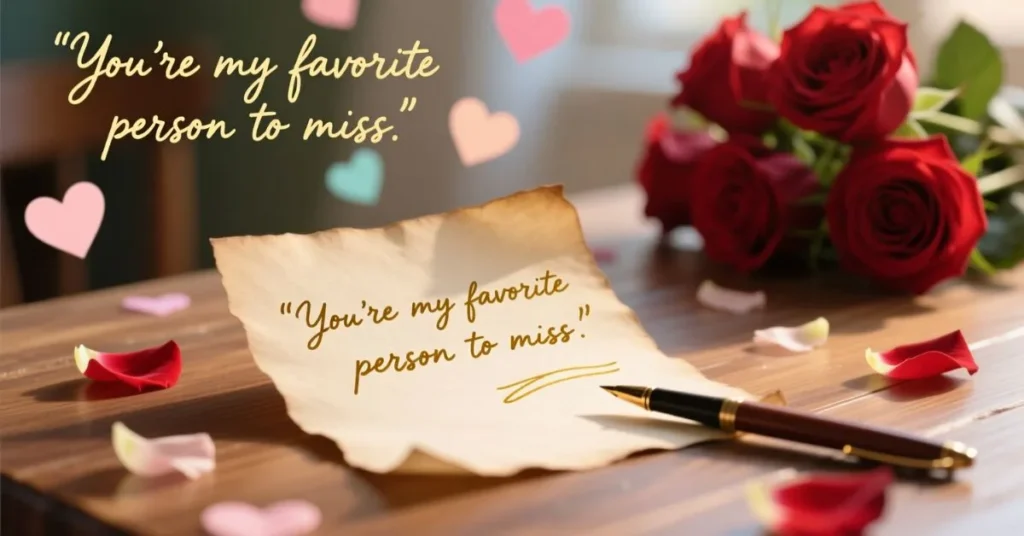 “You're my favorite
person to miss.”
“You're my favorite
person to miss.”